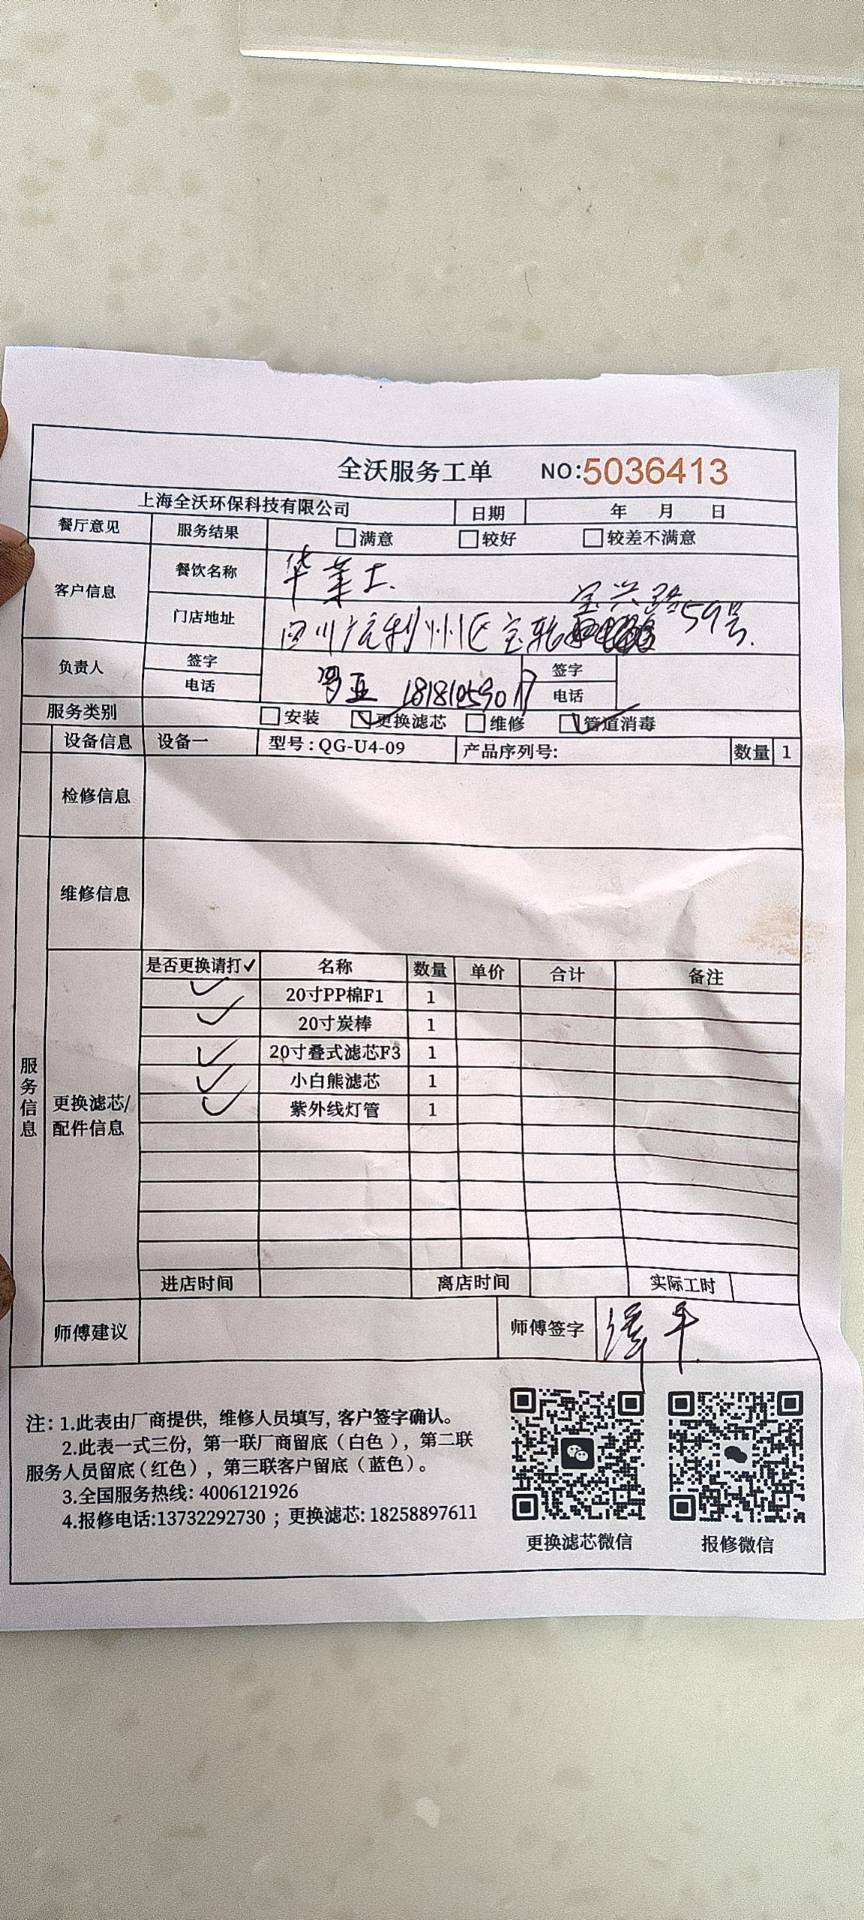 全沃服务工单 NO:5036413
上海全沃环保科技有限公司 日期 年 月 日
餐厅意见 服务结果 满意 较好 较差不满意
客户信息 餐饮名称 华莱士.
门店地址 四川广元利州区宝轮 宝兴路59号.
负责人 签字 罗亚 签字
电话 电话
服务类别 安装 更换滤芯 维修 管道消毒
设备信息 设备一 型号:QG-U4-09 产品序列号: 数量 1
检修信息
维修信息
服务信息
更换滤芯/配件信息
是否更换请打✓ 名称 数量 单价 合计 备注
✓ 20寸PP棉F1 1
✓ 20寸炭棒 1
✓ 20寸叠式滤芯F3 1
✓ 小白熊滤芯 1
✓ 紫外线灯管 1
进店时间 离店时间 实际工时
师傅建议 师傅签字
注: 1.此表由厂商提供, 维修人员填写, 客户签字确认。
2.此表一式三份, 第一联厂商留底(白色), 第二联
服务人员留底(红色), 第三联客户留底(蓝色)。
3.全国服务热线: 4006121926
4.报修电话:13732292730 ; 更换滤芯: 18258897611
更换滤芯微信 报修微信